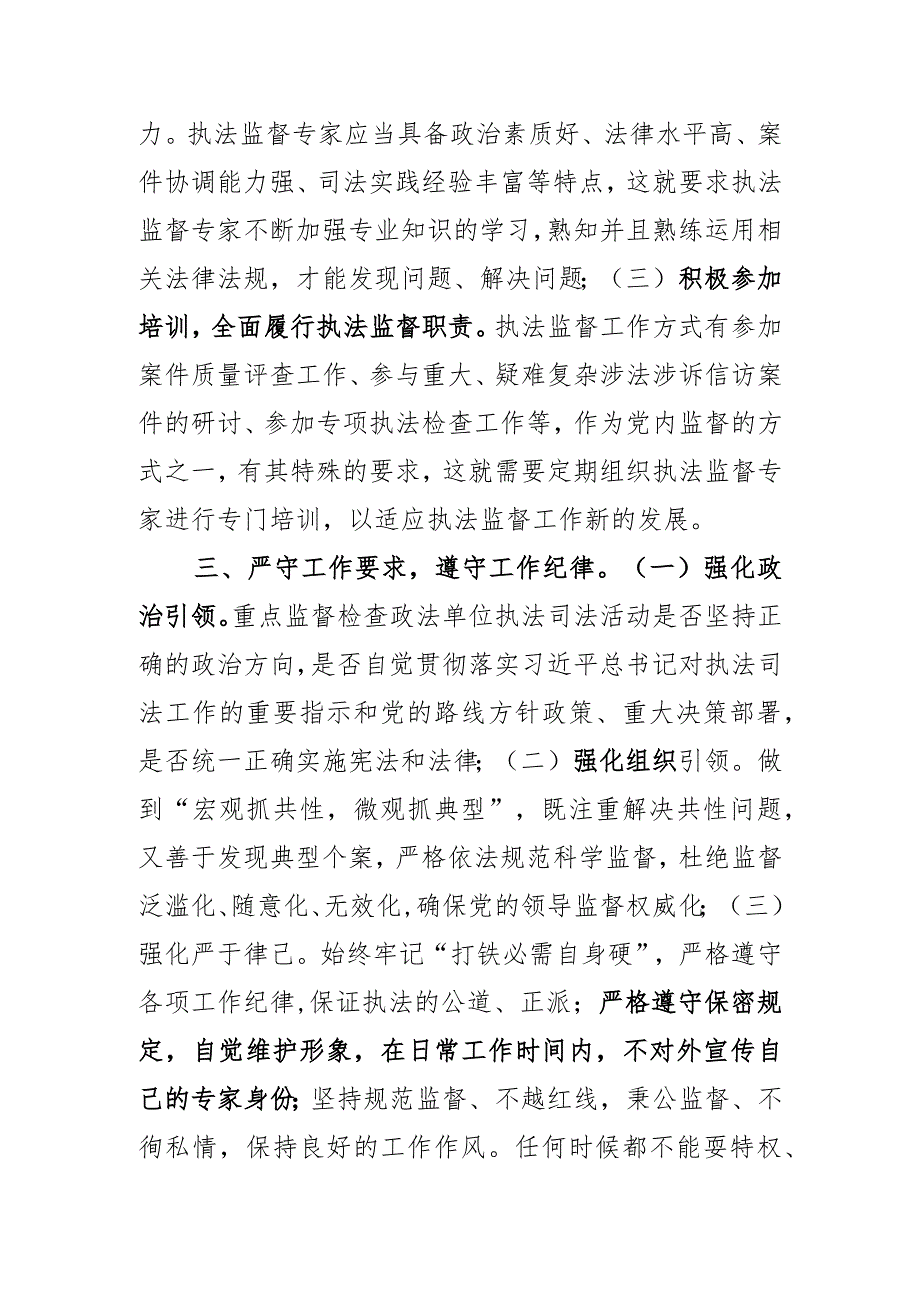 力。执法监督专家应当具备政治素质好、法律水平高、案
件协调能力强、司法实践经验丰富等特点，这就要求执法
监督专家不断加强专业知识的学习，熟知并且熟练运用相
关法律法规，才能发现问题、解决问题；（三）积极参加
培训，全面履行执法监督职责。执法监督工作方式有参加
案件质量评查工作、参与重大、疑难复杂涉法涉诉信访案
件的研讨、参加专项执法检查工作等，作为党内监督的方
式之一，有其特殊的要求，这就需要定期组织执法监督专
家进行专门培训，以适应执法监督工作新的发展。
三、严守工作要求，遵守工作纪律。（一）强化政
治引领。重点监督检查政法单位执法司法活动是否坚持正
确的政治方向，是否自觉贯彻落实习近平总书记对执法司
法工作的重要指示和党的路线方针政策、重大决策部署，
是否统一正确实施宪法和法律；（二）强化组织引领。做
到“宏观抓共性，微观抓典型”，既注重解决共性问题，
又善于发现典型个案，严格依法规范科学监督，杜绝监督
泛滥化、随意化、无效化，确保党的领导监督权威化；（三）
强化严于律己。始终牢记“打铁必需自身硬”，严格遵守
各项工作纪律，保证执法的公道、正派；严格遵守保密规
定，自觉维护形象，在日常工作时间内，不对外宣传自
己的专家身份；坚持规范监督、不越红线，秉公监督、不
徇私情，保持良好的工作作风。任何时候都不能耍特权、